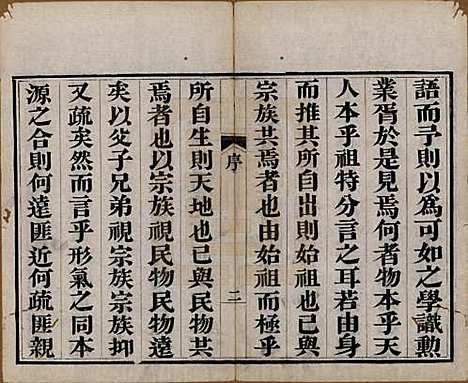 語而予則以為可如之學識勲
業胥於是見焉何者物本乎天
人本乎祖特分言之耳若由身
而推其所自出則始祖也已與
宗族共焉者也由始祖而極乎
序
二
所自生則天地也已與民物共
焉者也以宗族視民物民物遠
矣以父子兄弟視宗族宗族抑
又疏矣然而言乎形氣之同本
源之合則何遠匪近何疏匪親